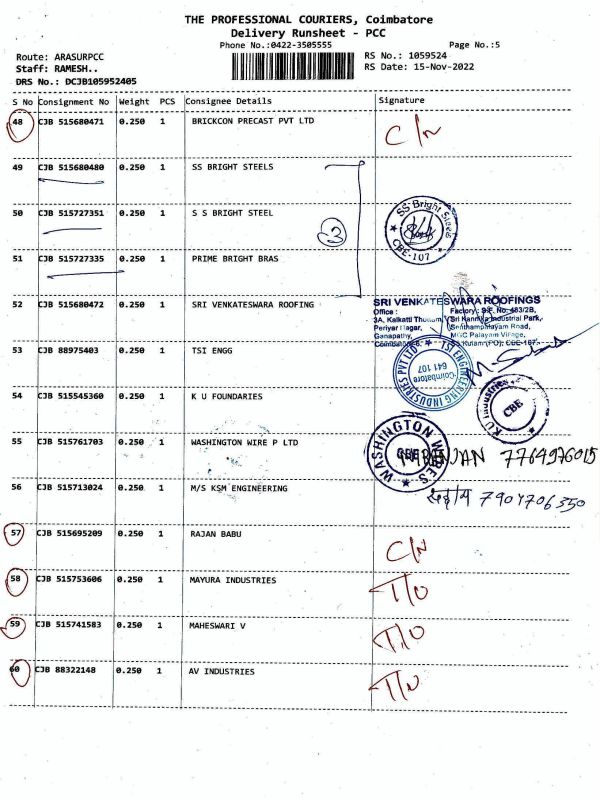 THE PROFESSIONAL COURIERS, Coimbatore
Delivery Runsheet - PCC
Phone No.:0422-3505555 Page No.:5
Route: ARASURPCC RS No.: 1059524
Staff: RAMESH.. RS Date: 15-Nov-2022
DRS No.: DCJB105952405
S No Consignment No Weight PCS Consignee Details Signature
48 CJB 515680471 0.250 1 BRICKCON PRECAST PVT LTD C/N
49 CJB 515680480 0.250 1 SS BRIGHT STEELS
50 CJB 515727351 0.250 1 S S BRIGHT STEEL
3
SS Bright Steels
CBE-107
51 CJB 515727335 0.250 1 PRIME BRIGHT BRAS
52 CJB 515680472 0.250 1 SRI VENKATESWARA ROOFING
SRI VENKATESWARA ROOFINGS
Office : Factory: S.F. No. 483/2B,
3A, Kalkatti Thottam, Sri Kannika Industrial Park,
Periyar Nagar, Senthampalayam Road,
Ganapathy, MGC Palayam Village,
53 CJB 88975403 0.250 1 TSI ENGG
TSI ENGINEERING INDUSTRIES PVT LTD
Coimbatore
641 107
54 CJB 515545360 0.250 1 K U FOUNDARIES
KU Industries
CBE
55 CJB 515761703 0.250 1 WASHINGTON WIRE P LTD
WASHINGTON WIRES
CBE
7764976015
56 CJB 515713024 0.250 1 M/S KSM ENGINEERING
7904706350
57 CJB 515695209 0.250 1 RAJAN BABU C/N
58 CJB 515753606 0.250 1 MAYURA INDUSTRIES T/O
59 CJB 515741583 0.250 1 MAHESWARI V T/O
60 CJB 88322148 0.250 1 AV INDUSTRIES T/N